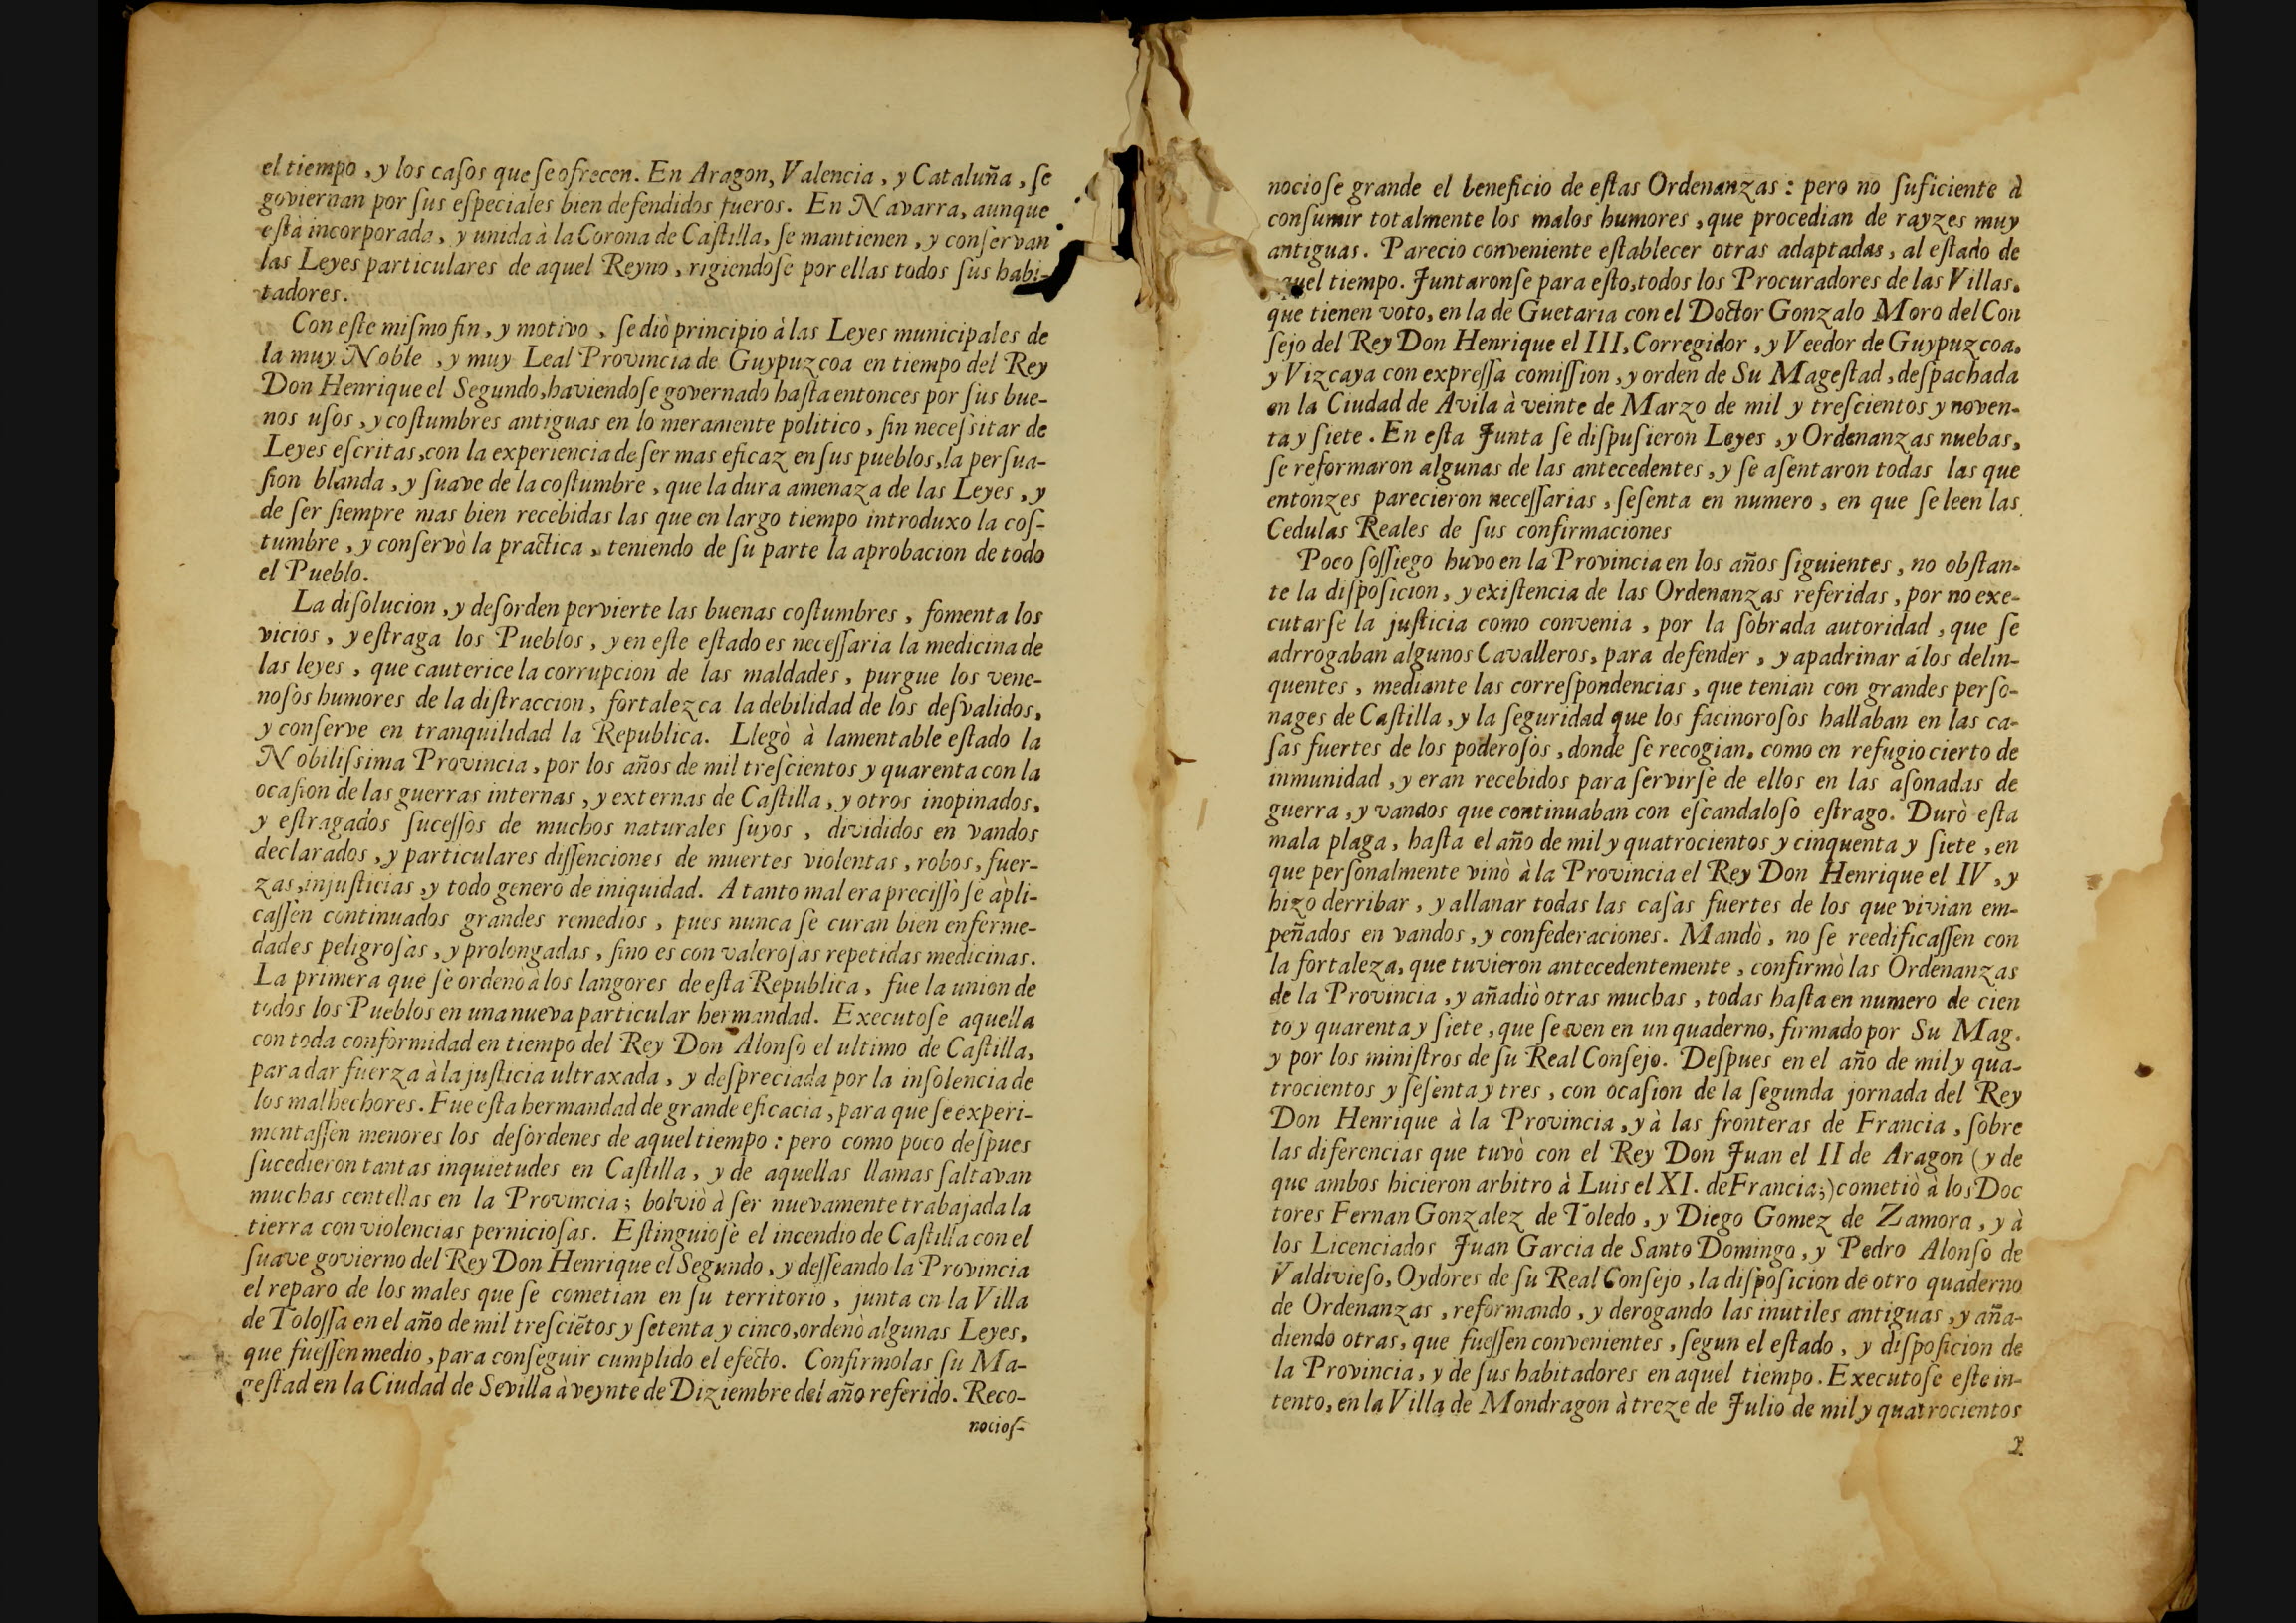 el tiempo, y los caſos que ſe ofrecen. En Aragon, Valencia, y Cataluña, ſe
goviernan por ſus eſpeciales bien defendidos fueros. En Navarra, aunque
eſtà incorporada, y unida à la Corona de Caſtilla, ſe mantienen, y conſervan
las Leyes particulares de aquel Reyno, rigiendoſe por ellas todos ſus habi-
tadores.
Con eſte miſmo fin, y motivo, ſe diò principio à las Leyes municipales de
la muy Noble, y muy Leal Provincia de Guypuzcoa en tiempo del Rey
Don Henrique el Segundo, haviendoſe governado haſta entonces por ſus bue-
nos uſos, y coſtumbres antiguas en lo meramente politico, ſin neceſsitar de
Leyes eſcritas, con la experiencia de ſer mas eficaz en ſus pueblos, la perſua-
ſion blanda, y ſuave de la coſtumbre, que la dura amenaza de las Leyes, y
de ſer ſiempre mas bien recebidas las que en largo tiempo introduxo la coſ-
tumbre, y conſervò la practica, teniendo de ſu parte la aprobacion de todo
el Pueblo.
La diſolucion, y deſorden pervierte las buenas coſtumbres, fomenta los
vicios, y eſtraga los Pueblos, y en eſte eſtado es neceſſaria la medicina de
las leyes, que cauterice la corrupcion de las maldades, purgue los vene-
noſos humores de la diſtraccion, fortalezca la debilidad de los deſvalidos,
y conſerve en tranquilidad la Republica. Llegò à lamentable eſtado la
Nobiliſsima Provincia, por los años de mil treſcientos y quarenta con la
ocaſion de las guerras internas, y externas de Caſtilla, y otros inopinados,
y eſtragados ſuceſſos de muchos naturales ſuyos, divididos en vandos
declarados, y particulares diſſenciones de muertes violentas, robos, fuer-
zas, injuſticias, y todo genero de iniquidad. A tanto mal era preciſſo ſe apli-
caſſen continuados grandes remedios, pues nunca ſe curan bien enferme-
dades peligroſas, y prolongadas, ſino es con valeroſas repetidas medicinas.
La primera que ſe ordenò à los langores de eſta Republica, fue la union de
todos los Pueblos en una nueva particular hermandad. Executoſe aquella
con toda conformidad en tiempo del Rey Don Alonſo el ultimo de Caſtilla,
para dar fuerza à la juſticia ultraxada, y deſpreciada por la inſolencia de
los malhechores. Fue eſta hermandad de grande eficacia, para que ſe experi-
mentaſſen menores los deſordenes de aquel tiempo: pero como poco deſpues
ſucedieron tantas inquietudes en Caſtilla, y de aquellas llamas ſaltavan
muchas centellas en la Provincia; bolviò à ſer nuevamente trabajada la
tierra con violencias pernicioſas. Eſtinguioſe el incendio de Caſtilla con el
ſuave govierno del Rey Don Henrique el Segundo, y deſſeando la Provincia
el reparo de los males que ſe cometian en ſu territorio, junta en la Villa
de Toloſſa en el año de mil treſciẽtos y ſetenta y cinco, ordenò algunas Leyes,
que fueſſen medio, para conſeguir cumplido el efecto. Confirmolas ſu Ma-
geſtad en la Ciudad de Sevilla à veynte de Diziembre del año referido. Reco-
nocioſ-
nocioſe grande el beneficio de eſtas Ordenanzas: pero no ſuficiente à
conſumir totalmente los malos humores, que procedian de rayzes muy
antiguas. Parecio conveniente eſtablecer otras adaptadas, al eſtado de
aquel tiempo. Juntaronſe para eſto, todos los Procuradores de las Villas,
que tienen voto, en la de Guetaria con el Doctor Gonzalo Moro del Con
ſejo del Rey Don Henrique el III, Corregidor, y Veedor de Guypuzcoa,
y Vizcaya con expreſſa comiſſion, y orden de Su Mageſtad, deſpachada
en la Ciudad de Avila à veinte de Marzo de mil y treſcientos y noven-
ta y ſiete. En eſta Junta ſe diſpuſieron Leyes, y Ordenanzas nuebas,
ſe reformaron algunas de las antecedentes, y ſe aſentaron todas las que
entonzes parecieron neceſſarias, ſeſenta en numero, en que ſe leen las
Cedulas Reales de ſus confirmaciones
Poco ſoſſiego huvo en la Provincia en los años ſiguientes, no obſtan-
te la diſpoſicion, y exiſtencia de las Ordenanzas referidas, por no exe-
cutarſe la juſticia como convenia, por la ſobrada autoridad, que ſe
adrrogaban algunos Cavalleros, para defender, y apadrinar à los delin-
quentes, mediante las correſpondencias, que tenian con grandes perſo-
nages de Caſtilla, y la ſeguridad que los facinoroſos hallaban en las ca-
ſas fuertes de los poderoſos, donde ſe recogian, como en refugio cierto de
inmunidad, y eran recebidos para ſervirſe de ellos en las aſonadas de
guerra, y vandos que continuaban con eſcandaloſo eſtrago. Durò eſta
mala plaga, haſta el año de mil y quatrocientos y cinquenta y ſiete, en
que perſonalmente vinò à la Provincia el Rey Don Henrique el IV, y
hizo derribar, y allanar todas las caſas fuertes de los que vivian em-
peñados en vandos, y confederaciones. Mandò, no ſe reedificaſſen con
la fortaleza, que tuvieron antecedentemente, confirmò las Ordenanzas
de la Provincia, y añadiò otras muchas, todas haſta en numero de cien
to y quarenta y ſiete, que ſe ven en un quaderno, firmado por Su Mag.
y por los miniſtros de ſu Real Conſejo. Deſpues en el año de mil y qua-
trocientos y ſeſenta y tres, con ocaſion de la ſegunda jornada del Rey
Don Henrique à la Provincia, y à las fronteras de Francia, ſobre
las diferencias que tuvò con el Rey Don Juan el II de Aragon (y de
que ambos hicieron arbitro à Luis el XI. de Francia;) cometiò à los Doc
tores Fernan Gonzalez de Toledo, y Diego Gomez de Zamora, y à
los Licenciados Juan Garcia de Santo Domingo, y Pedro Alonſo de
Valdivieſo, Oydores de ſu Real Conſejo, la diſpoſicion de otro quaderno
de Ordenanzas, reformando, y derogando las inutiles antiguas, y aña-
diendo otras, que fueſſen convenientes, ſegun el eſtado, y diſpoſicion de
la Provincia, y de ſus habitadores en aquel tiempo. Executoſe eſte in-
tento, en la Villa de Mondragon à treze de Julio de mil y quatrocientos